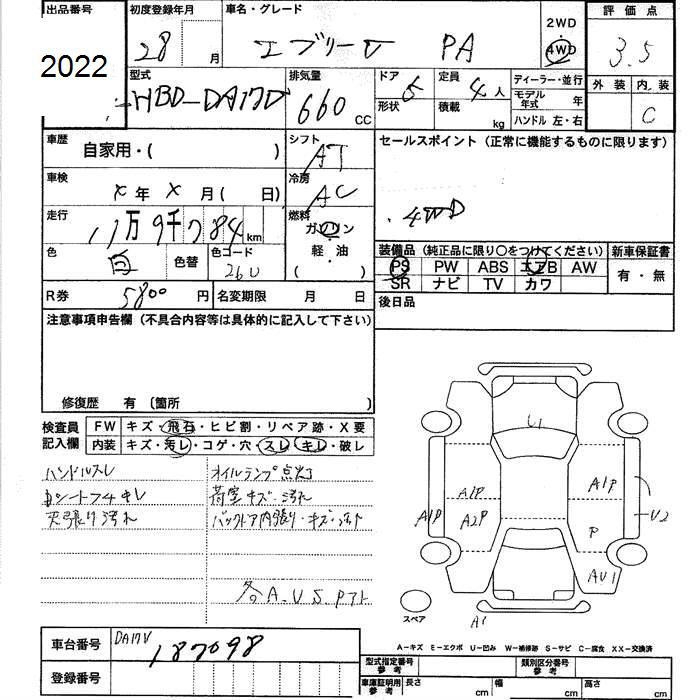 出品番号 初度登録年月 車名・グレード 2WD 評価点
2022 28 月 エブリーV PA 4WD 3.5
型式 排気量 ドア 5 定員 4人 ディーラー・並行 外装 内装
HBD-DA17D 660 CC 形状 積載 kg モデル年式 年 C
ハンドル 左・右
車歴 自家用・( ) シフト AT セールスポイント (正常に機能するものに限ります)
車検 x年 x月( 日) 冷房 AC
走行 11万9千784km 燃料 ガソリン 4WD
軽・油
( )
色 白 色替 色コード 26U 装備品 (純正品に限り〇をつけてください) 新車保証書
PS PW ABS エアB AW 有・無
SR ナビ TV カワ
R券 5800円 名変期限 月 日 後日品
注意事項申告欄 (不具合内容等は具体的に記入して下さい)
修復歴 有 〔箇所 〕
検査員 FW キズ・飛石・ヒビ割・リペア跡・X要
記入欄 内装 キズ・汚レ・コゲ・穴・スレ・キレ・破レ
ハンドルスレ オイルランプ点灯
シートフチキレ 荷室キズ・汚れ
天張り汚れ バックドア内張り・キズ・汚れ
各A.U.S.Pアト
U1
A1P A1P
A1P A2P P U2
AU1
スペア A1
A-キズ E-エクボ U-凹み W-補修跡 S-サビ C-腐食 XX-交換済
車台番号 DA17V 187098 型式指定番号 参考 類別区分番号 参考
登録番号 車庫証明用 参考 長さ cm 幅 cm 高さ cm